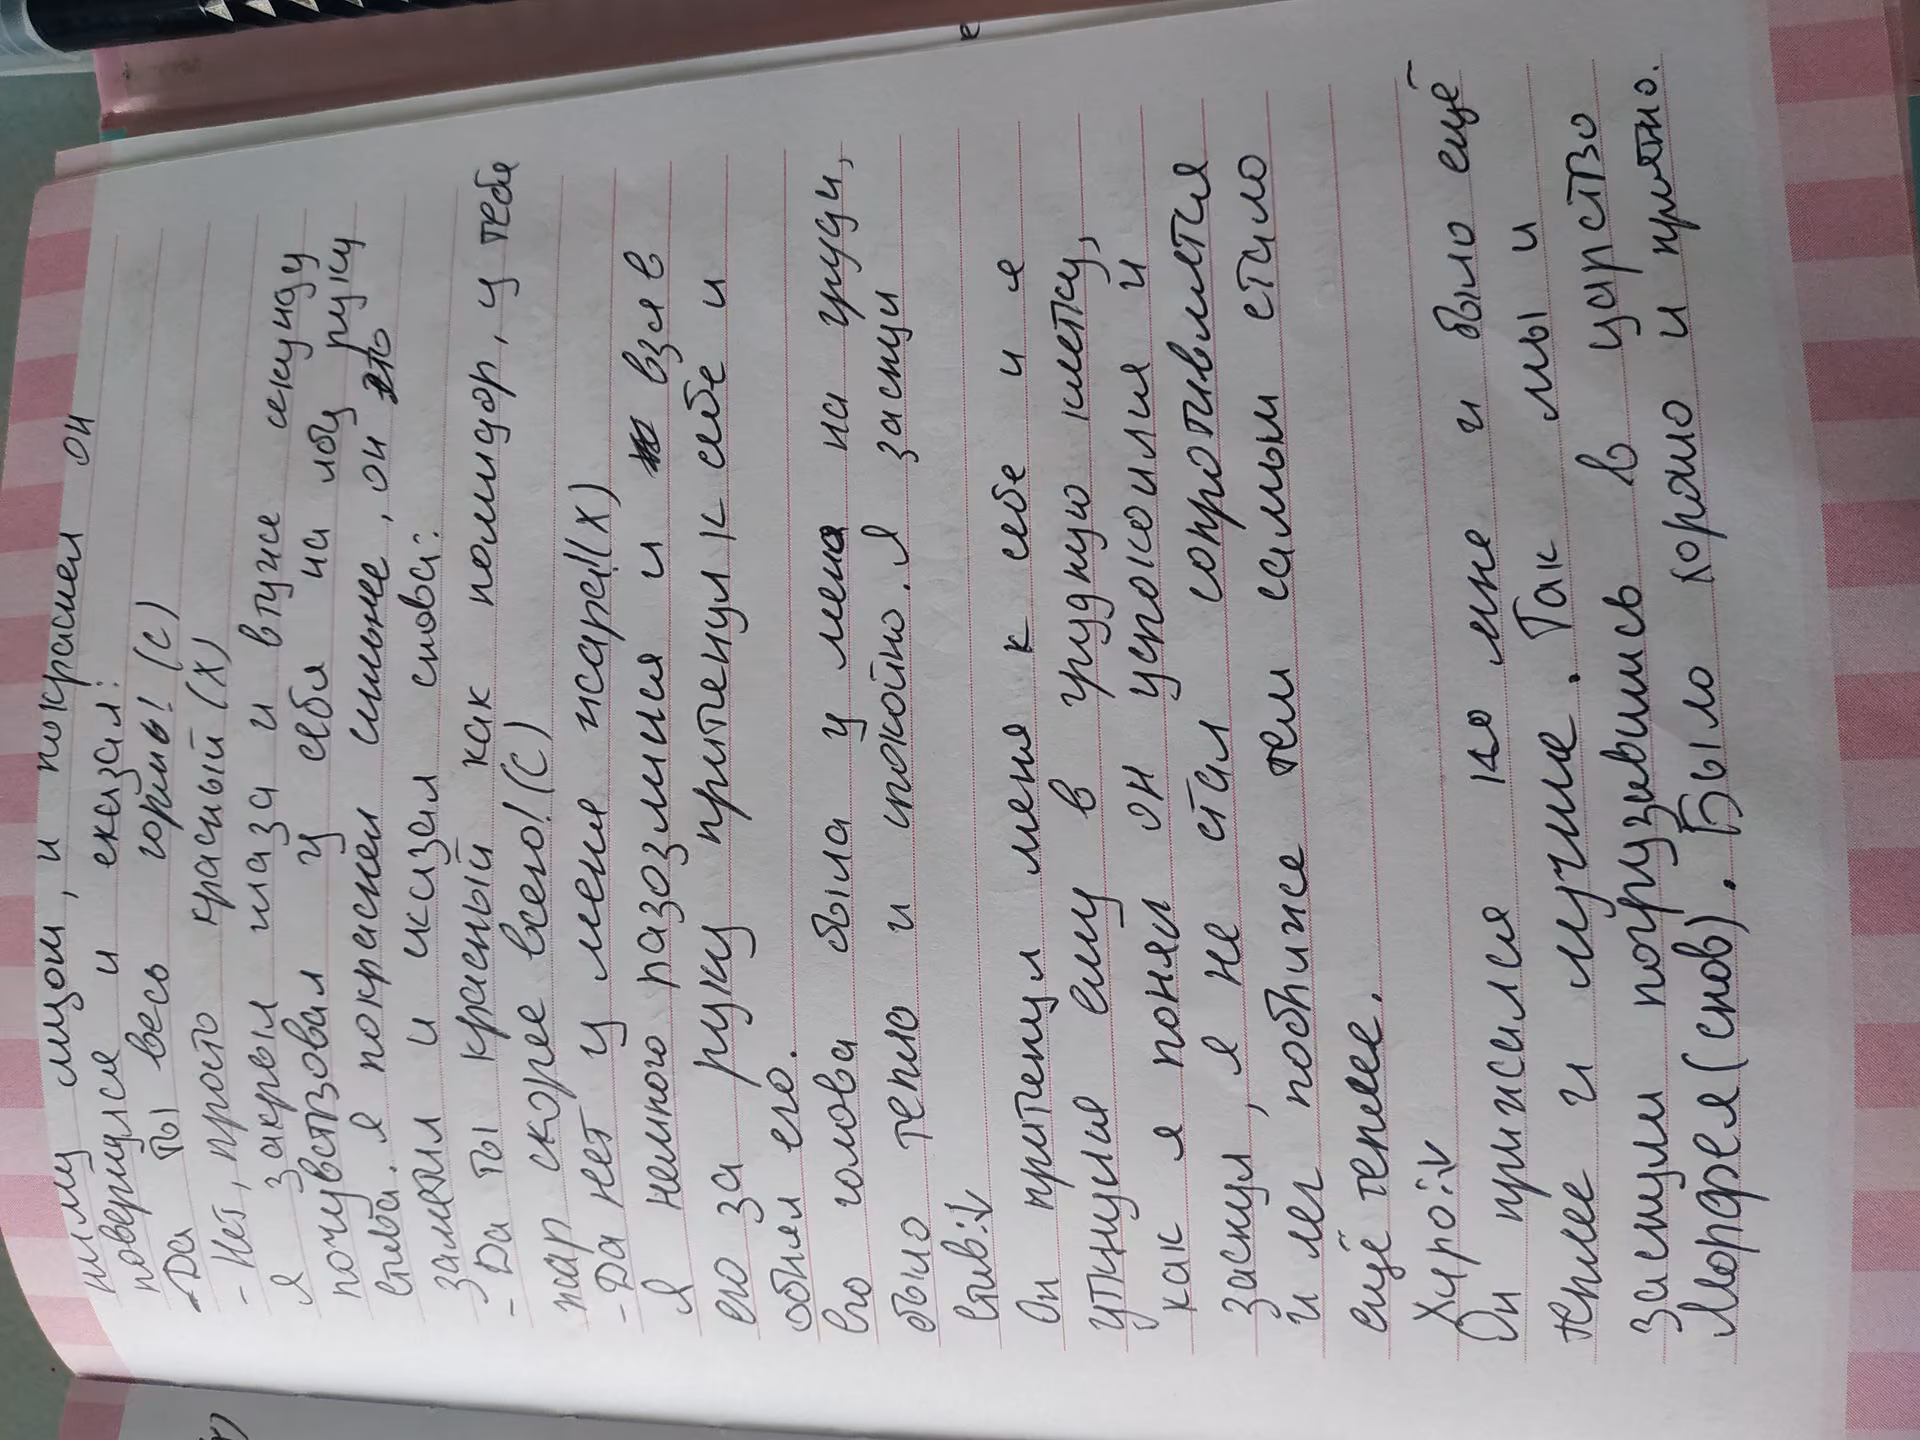 нему лицом, и покраснел он
повернулся и сказал:
-Да ты весь горишь! (С)
-Нет, просто красный (Х)
Я закрыл глаза и в туже секунду
почувствовал у себя на лбу руку
Стива. я покраснел сильнее, он это
заметил и сказал снова:
- Да ты красный как помидор, у тебя
жар скорее всего! (С)
-Да нет у меня жара!(Х)
Я немного разозлился и взял в
его за руку притенул к себе и
обнял его.
Его голова была у меня на груди,
было тепло и спокойно. Я заснул
Стив:↓
Он притенул меня к себе и я
уткнулся ему в грудную клетку,
как я понял он успокоился и
заснул, я не стал сопротивлятся
и лёг поближе тем самым стало
ещё теплее.
Хиро:↓
Он прижился ко мне и было ещё
теплее и лучше. Так мы и
заснули погрузившись в царство
Морфея(снов). Было хорошо и приятно.